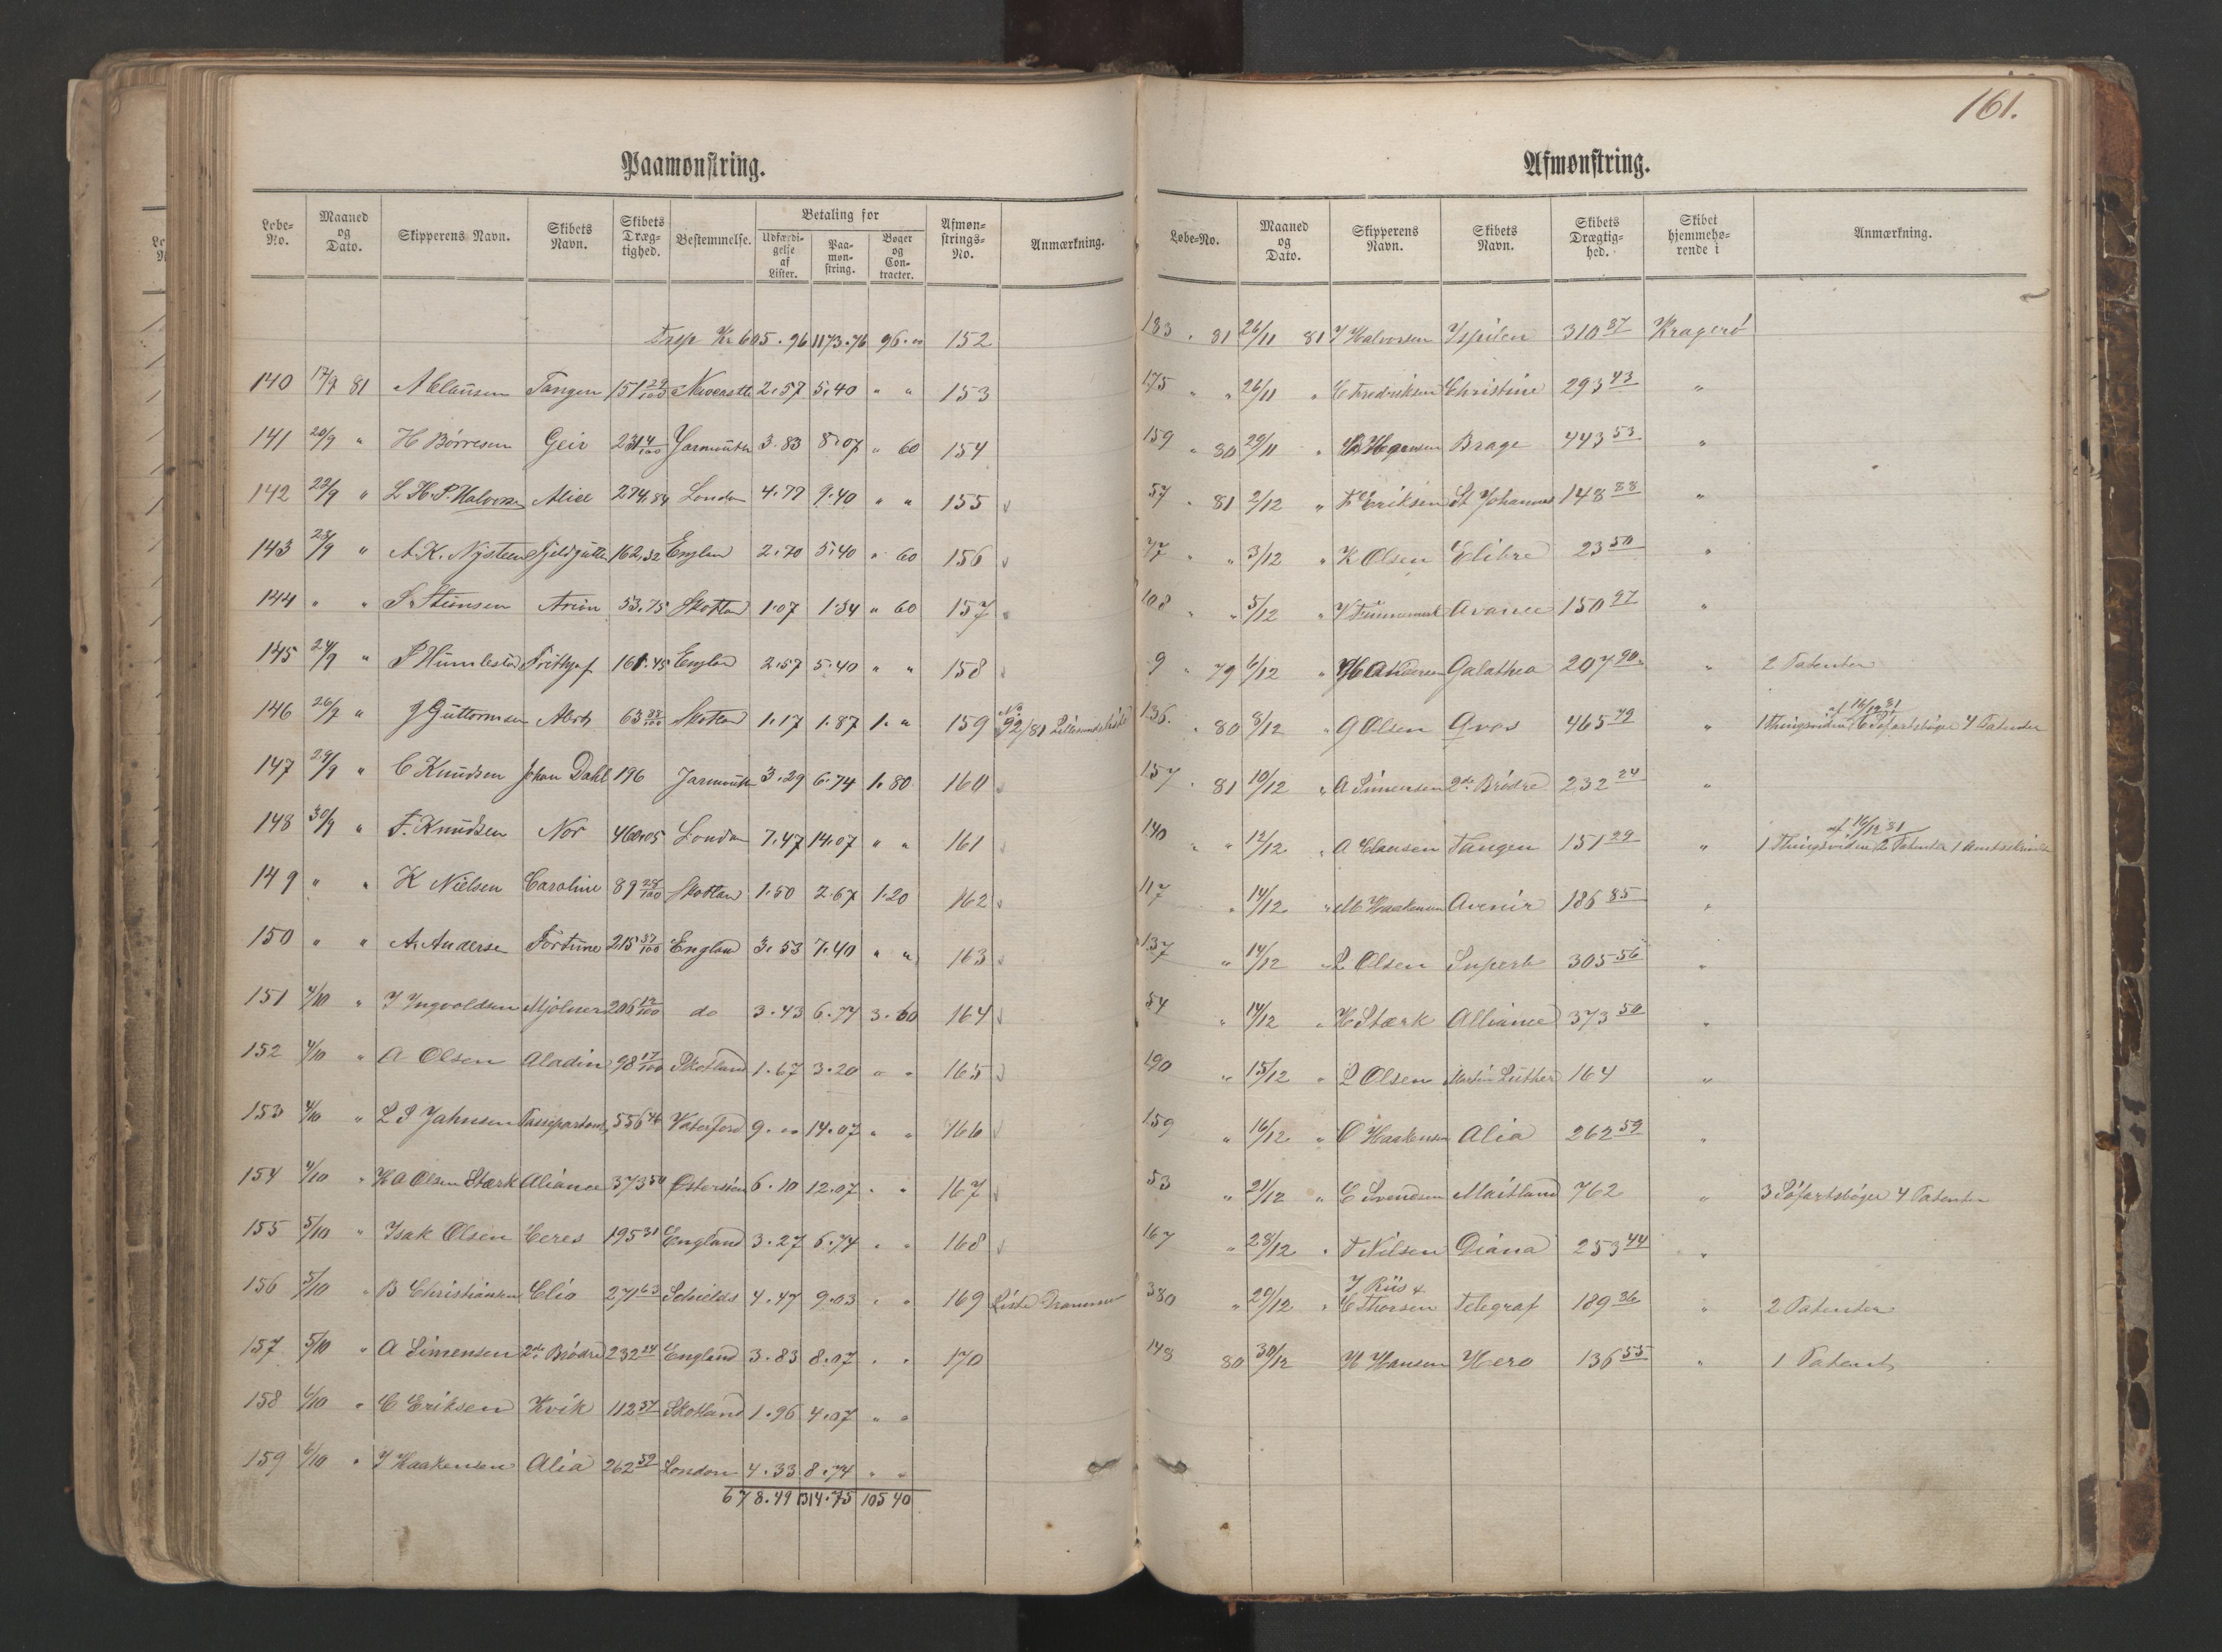 161.
Paamønstring.
Løbe-No. Maaned og Dato. Skipperens Navn. Skibets Navn. Skibets Dræg-tighed. Bestemmelse. Betaling for Udfærdi-gelse af Lister. Paa-møn-string. Bøger og Con-tracter. Afmøn-strings-No. Anmærkning.
Trsp Kr 605.96 1173.76 96.00 152
140 17/9 81 A Clausen Tangen 151 29/100 Newcastle 2.57 5.40 " " 153
141 20/9 " H Börresen Geir 231 4/100 Yarmouth 3.83 8.07 " 60 154
142 22/9 " L H. P. Halvorsen Alice 274.84 London 4.77 9.40 " " 155
143 23/9 " A. K. Nysteen Fjeldgutten 162,32 England 2.70 5.40 " 60 156
144 " " S Stensen 53.75 Skotland 1.07 1.34 " 60 157
145 24/9 " P Humlestad Frithjof 161.45 England 2.57 5.40 " " 158
146 26/9 " J Guttormsen 63 88/100 Skotland 1.17 1.87 1. " 159 No 92/81
147 29/9 " C Knudsen Johan Dahl 196 Jarmouth 3.29 6.74 1.80 160
148 30/9 " F. Knudsen Nor 460.05 London 7.47 14.07 " " 161
149 " " K Nielsen Caroline 89 28/100 Skotland 1.50 2.67 1.20 162
150 " " A. Andersen Fortuna 215 37/100 England 3.53 7.40 " " 163
151 4/10 " J Ingvoldsen Mjölner 206 12/100 do 3.43 6.74 3.60 164
152 4/10 " A Olsen Aladin 98 17/100 Skotland 1.67 3.20 " " 165
153 4/10 " L S Jahnsen 556 46 Waterford 9. " 14.07 " " 166
154 4/10 " H A Olsen Stærk Aliance 373 50 Östersöen 6.10 12.07 " " 167
155 5/10 " Isak Olsen Ceres 195 31 England 3.27 6.74 " " 168
156 5/10 " B Christiansen Clio 271 63 Schields 4.47 9.03 " " 169 Liste Drammen
157 5/10 " A Simensen 2de Brödre 232 24 England 3.83 8.07 " " 170
158 6/10 " C Eriksen Kvik 112 37 Skotland 1.96 4.07 " "
159 6/10 " J Haakensen Alia 262 59 London 4.33 8.74 " "
678.49 1314.75 105 40
Afmønstring.
Løbe-No. Maaned og Dato. Skipperens Navn. Skibets Navn. Skibets Drægtig-hed. Skibet hjemmehø-rende i Anmærkning.
183 " 81 26/11 81 J Halvorsen Ispilen 310 87 Kragerö
175 " " 26/11 " C Fredriksen Christine 293 43 "
159 " 80 29/11 " Brage 443 53 "
57 " 81 2/12 " F Eriksen St Johannes 148 88 "
77 " " 3/12 " K Olsen Elibre 23 50 "
108 " " 5/12 " Avance 150 97 "
9 " 79 6/12 " Andersen Galathea 207 90 " 2 Patenter
136. " 80 8/12 " G Olsen Gvos 465 79 " 1 Thingsviden af 16/12 81 6 Söfartsböger 4 Patenter
157 " 81 10/12 " A Simensen 2de Brödre 232 24 "
140 " " 12/12 " A Clausen Tangen 151 29 " 1 Thingsviden af 16/12 81 2 Patenter 1
117 " 14/12 " M Haakensen Avenir 186 85 "
137 " 14/12 " L Olsen Superb 305 56 "
54 " 14/12 " H Stærk Alliance 373 50 "
190 " 15/12 " L Olsen Martin Luther 164 "
159 " 16/12 " C Haakensen Alia 262 59 "
53 " 21/12 " C Svendsen Maitland 762 " 3 Söfartsböger 4 Patenter
167 " 28/12 " F Nilsen Diana 253 44 "
380 " 29/12 " J. Riis & C Thorsen Telegraf 189 36 " 2 Patenter
148 80 30/12 H Hansen Hero 136 55 " 1 Patent